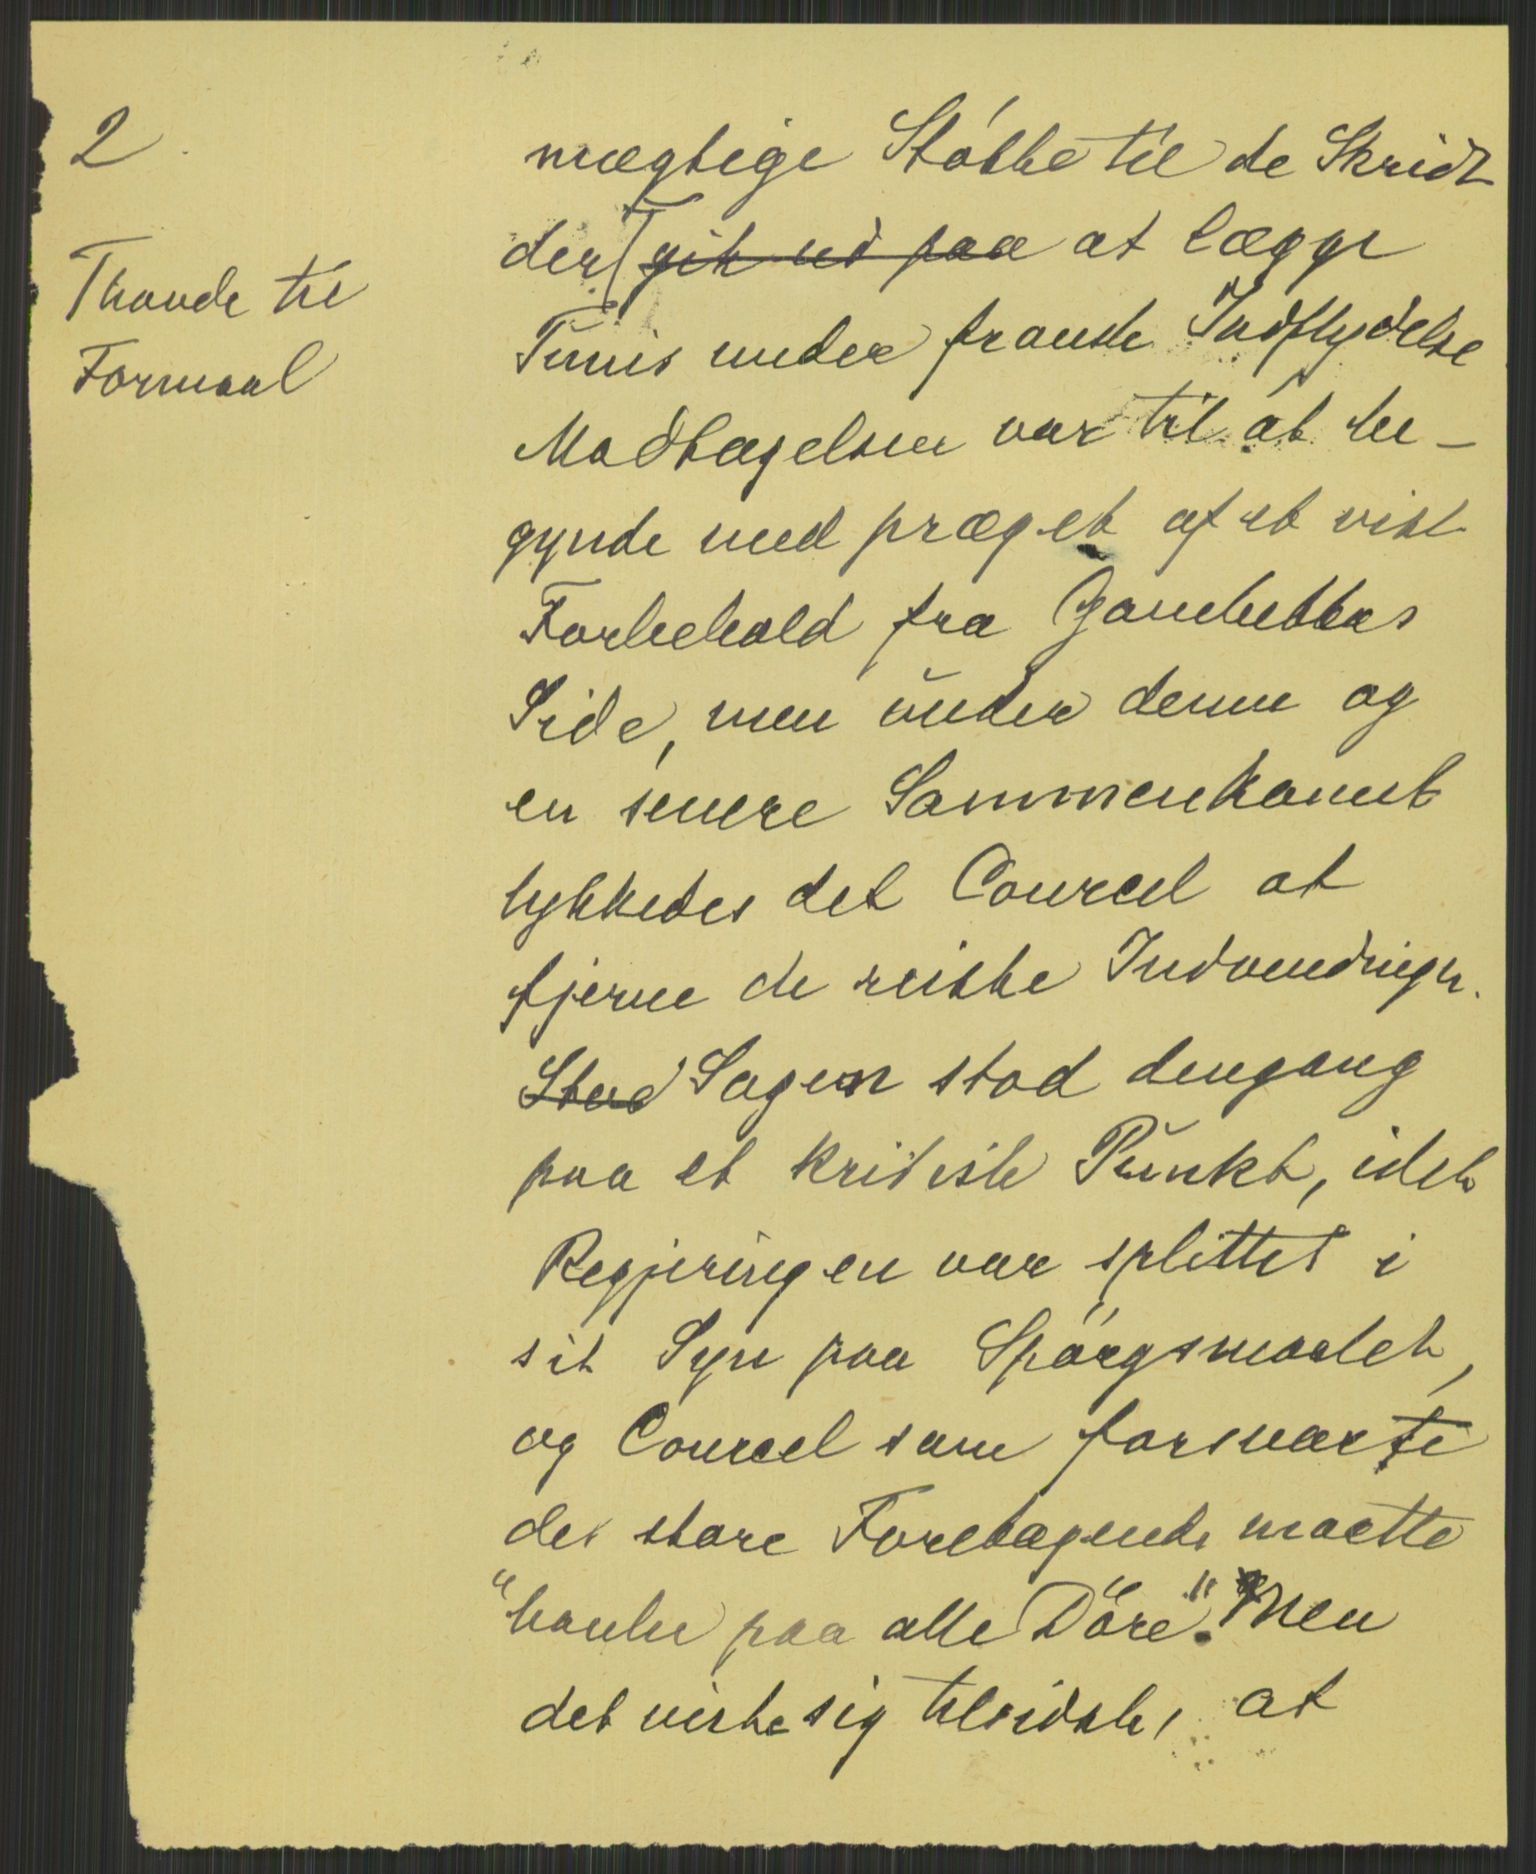 2
havde til
Formaal
mægtige Støtte til de Skridt
der gik ud paa at lægge
Tunis under fransk Indflydelse
Modtagelsen var til at be-
gynde med præget af et vist
Forbehold fra Gambettas
Side, men under denne og
en senere Sammenkomst
lykkedes det Courcel at
fjerne de reiste Indvendinger.
Stod Sagen stod dengang
paa et kritisk Punkt, idet
Regjeringen var splittet i
sit Syn paa Spörgsmaalet,
og Courcel som forsvarte
det store Foretagende maatte
"banke paa alle Döre". Men
det viste sig tilsidst, at